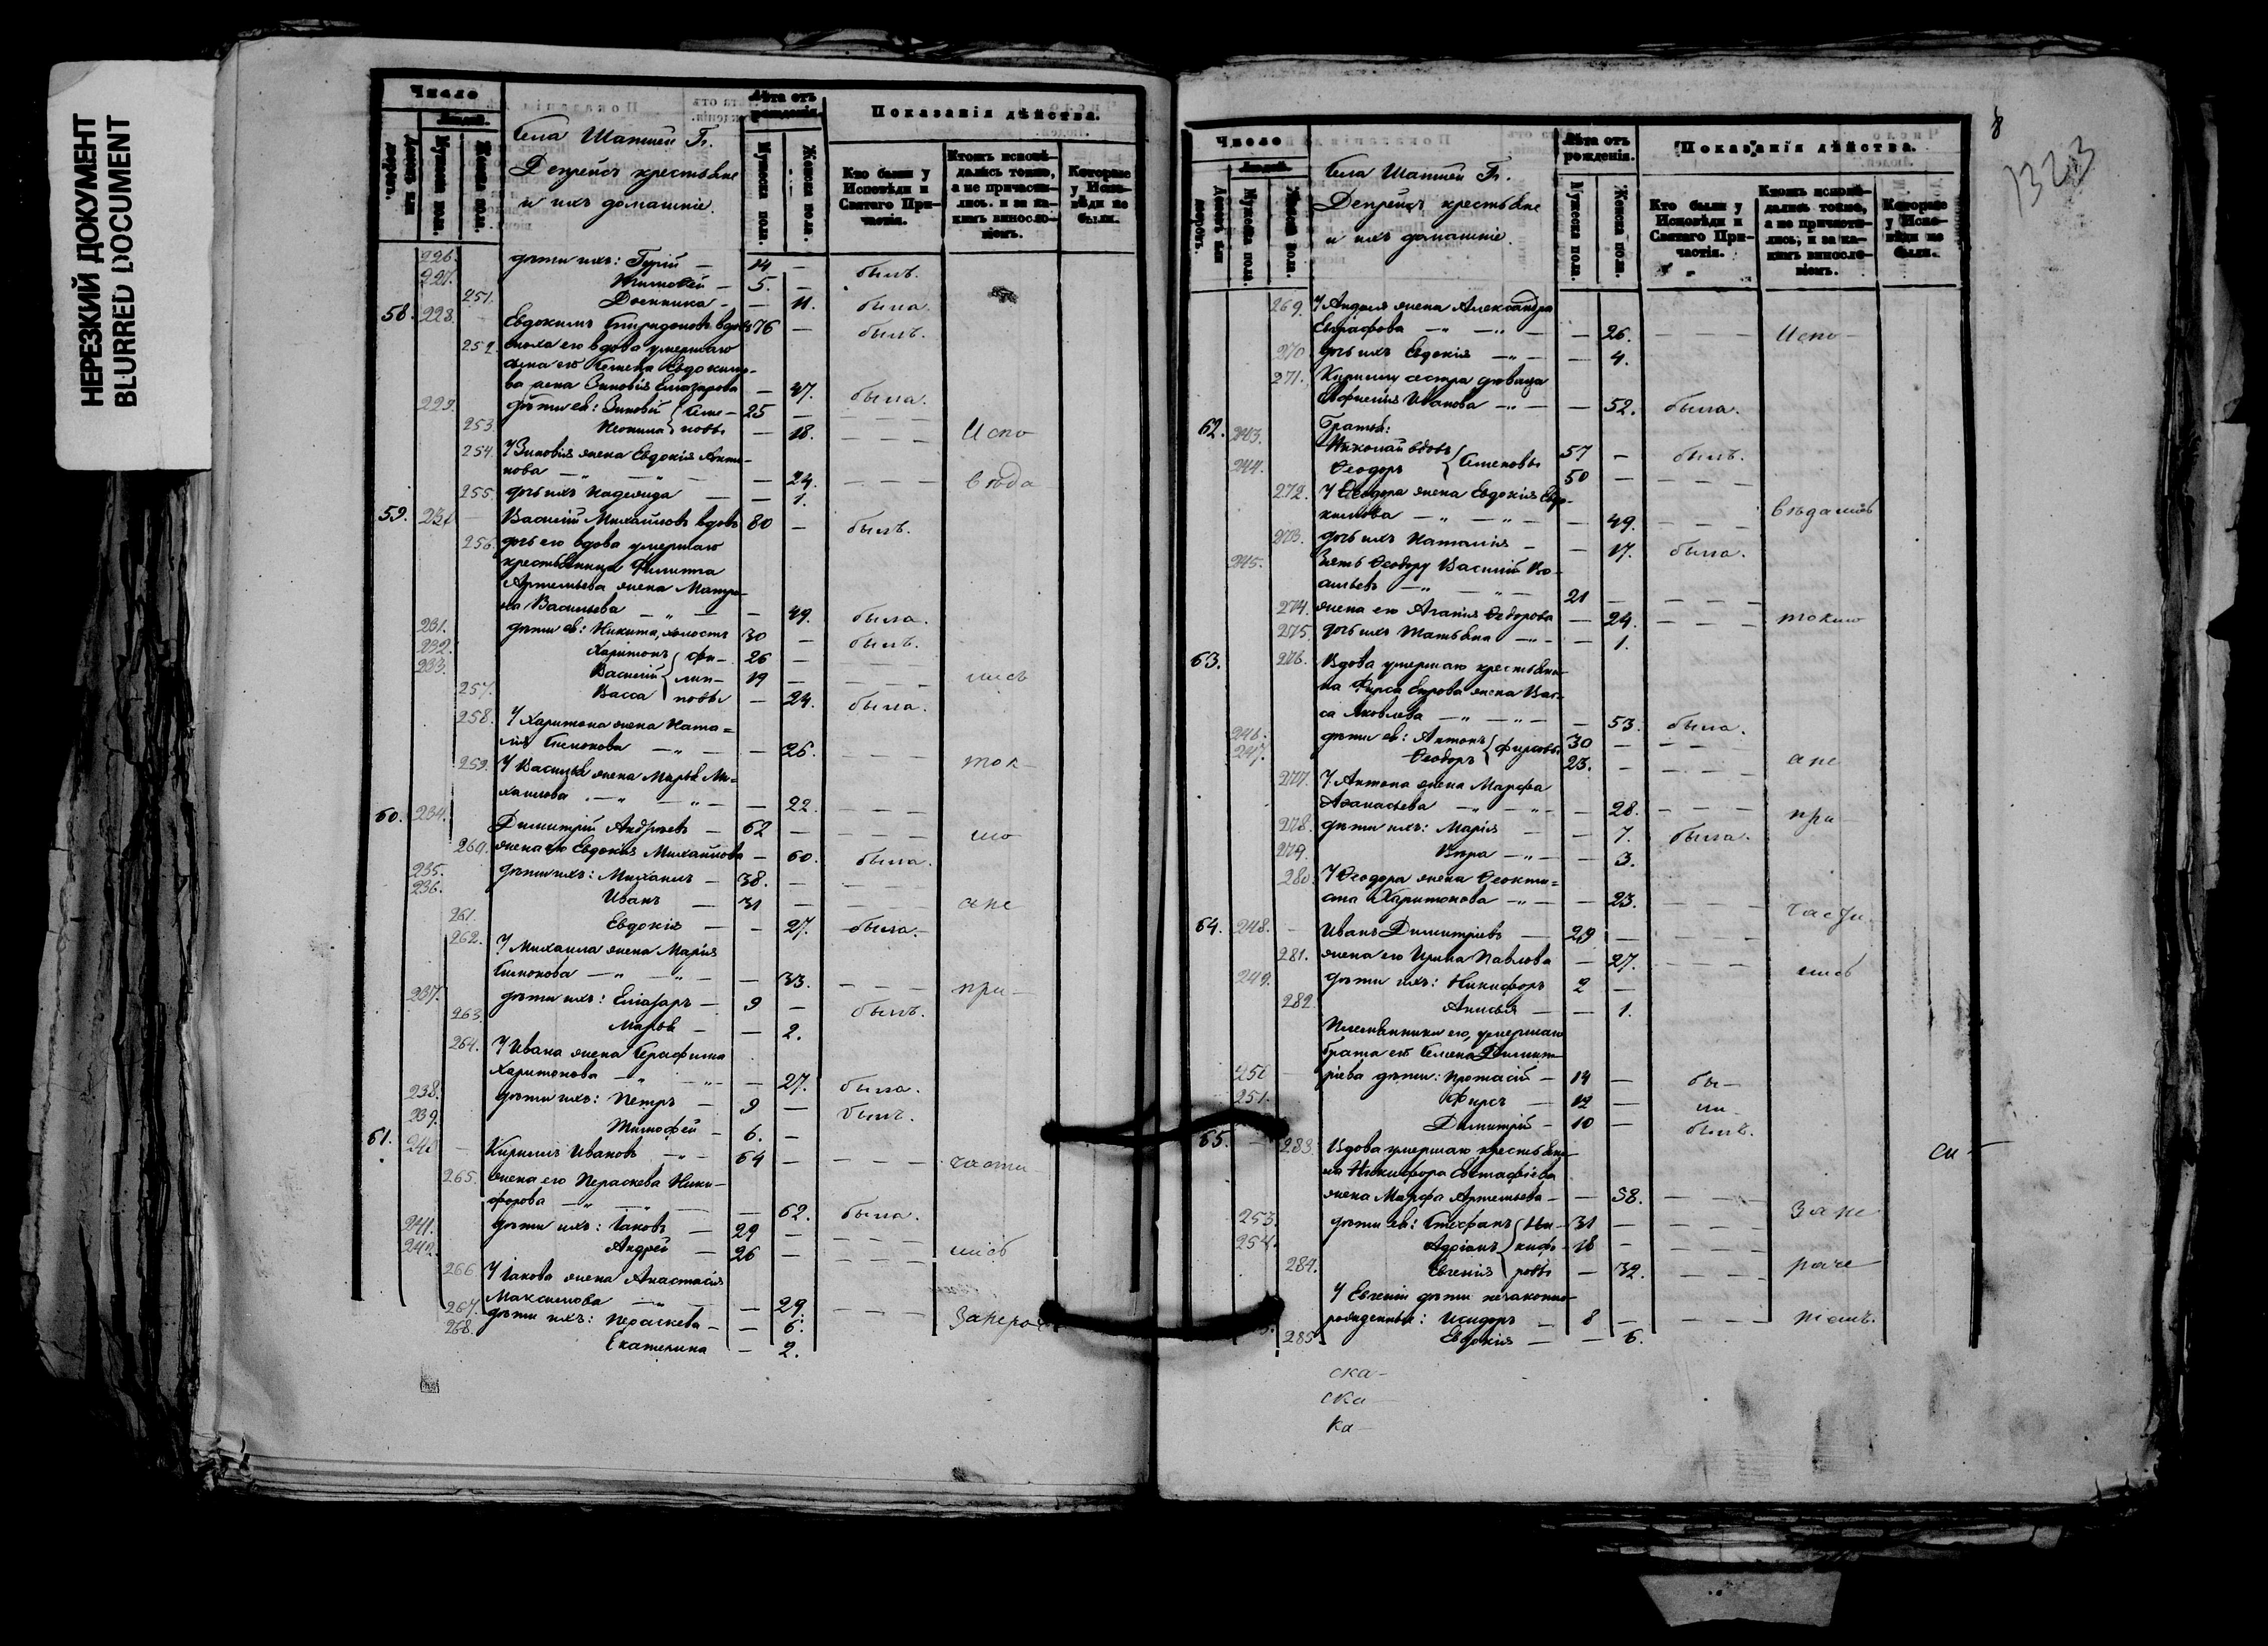 НЕРЕЗКИЙ ДОКУМЕНТ
BLURRED DOCUMENT
Число
Людей.
Домовъ или дворовъ.
Мужеска пола.
Женска пола.
Села Шатшей Г.
крестьяне
и ихъ домашніе.
Лѣта отъ рожденія.
Мужеска пола.
Женска пола.
Показанія дѣйства.
Кто были у Исповѣди и Святаго Причастія.
Ктожъ исповѣдались токмо, а не причастились, и за какимъ винословіемъ.
Которые у Исповѣди не были.
226. дѣти ихъ: Гурій — 14 — былъ.
227. Тимофей — 5. —
251. Домника — — 11. была.
58. 228. Евдокимъ Спиридоновъ вдовъ 76 — былъ.
252. сноха его вдова умершаго
сына его Семена Евдокимо-
ва жена Зиновія Елиазарова — 47. была.
229. дѣти ея: Зиновій { Семе- 25 —
253. Неонила } новы — 18. — — — Испо
254. У Зиновія жена Евдокія Анти-
пова — „ — „ — — 24. — — — вѣда
255. дочь ихъ Надежда — — 1.
59. 230 Василій Михайловъ вдовъ 80 — былъ.
256. дочь его вдова умершаго
крестьянина Филиппа
Артемьева жена Матре-
на Васильева — „ — — 49. была.
231. дѣти ея: Никита, холостъ 30 — былъ.
232. Харитонъ { Фи- 26 —
233. Василій { лип- 19 — — — — лись
257. Васса { повы — 24. была.
258. У Харитона жена Ната=
лія Симонова — „ — — 26. — — —
259. У Василья жена Марья Ми= ток-
хаилова — „ — „ — — 22. — — —
60. 234. Димитрій Андреевъ — 62 — — — — мо
260. жена его Евдокія Михайлова — 60. была.
235. дѣти ихъ: Михаилъ — 38. — — — —
236. Иванъ — 31 — — — — а не
261. Евдокія — — 27. была.
262. У Михаила жена Марія
Симонова — „ — „ — — 33. — — — при-
237. дѣти ихъ: Елиазаръ — 9 — былъ.
263. Марья — — 2.
264. У Ивана жена Серафима
Харитонова — „ — „ — — 27. была.
238. дѣти ихъ: Петръ — 9 — былъ.
239. Тимофей — 6. —
61. 240 — Кириллъ Ивановъ — „ — 64 — — — — части-
265. жена его Параскева Ники-
форова — „ — „ — — 62. была.
241. дѣти ихъ: Іаковъ — 29 — — — —
242. Андрей — 26 — лись
266 У Іакова жена Анастасія
Максимова — „ — — 29. — — — За неро-
267. дѣти ихъ: Параскева — — 6.
268. Екатерина — 2.
8
1323
Число
Людей.
Домовъ или дворовъ.
Мужеска пола.
Женска пола.
Села Шатшей Г.
крестьяне
и ихъ домашніе.
Лѣта отъ рожденія.
Мужеска пола.
Женска пола.
Показанія дѣйства.
Кто были у Исповѣди и Святаго Причастія.
Ктожъ исповѣдались токмо, а не причастились, и за какимъ винословіемъ.
Которые у Исповѣди не были.
269. У Андрея жена Александра
Евграфова — „ — „ — — 26. — — — Испо-
270 дочь ихъ Евдокія — „ — — 4.
271. Кириллу сестра дѣвица
Иванова — „ — — 52. была.
62. 243. Братья:
Николай вдовъ { Семеновы 57 — былъ.
244. Ѳеодоръ 50 — — — —
272. У Ѳеодора жена Евдокія Евдо-
кимова — „ — „ — — 49. — — — вѣдались
273. дочь ихъ Наталія — — 17. была.
245. Зять Ѳеодору Василій Ва-
сильевъ — „ — „ — 21 — — — —
274. жена его Агапія Ѳедорова — 24. — — — токмо
275. дочь ихъ Татьяна — „ — — 1.
63. 276. Вдова умершаго крестьяни-
на Фирса жена Вас-
са Яковлева — „ — „ — — 53. была.
246. дѣти ея: Антонъ { Фирсовы 30 — — —
247. Ѳеодоръ 23. — — — — а не
277. У Антона жена Марфа
Аѳанасьева — „ — „ — — 28. — — — при-
278. дѣти ихъ: Марія — — 7. была.
279. Вѣра — „ — — 3.
280. У Ѳеодора жена Ѳеокти=
ста Харитонова — „ — — 23. — — — части-
64. 248. — Иванъ Димитріевъ — 29 — — — —
281. жена его Ирина Павлова — 27. — — — лись
249. дѣти ихъ: Никифоръ 2 —
282. Анисья — — 1.
Племянники его, умершаго
брата его Семена Димит-
250 — ріева дѣти: Протасій — 14 — бы-
251. Фирсъ — 12 — ли
Димитрій — 10 — былъ.
65. — 283. Вдова умершаго крестьяни-
на Никифора Евстафіева см-
жена Марфа Артемьева — — 58. — — — За не
253. дѣти ея: Стефанъ { Ни- 31 — — — —
254. Адріанъ } кифо- 18 — — — —
284. Евгенія { ровы — 32. — — — раче-
У Евгеніи дѣти незаконно-
рожденные: Исидоръ — 8 — — — — ніемъ.
285. Евдокія — — 6.
ска-
ска-
ка-